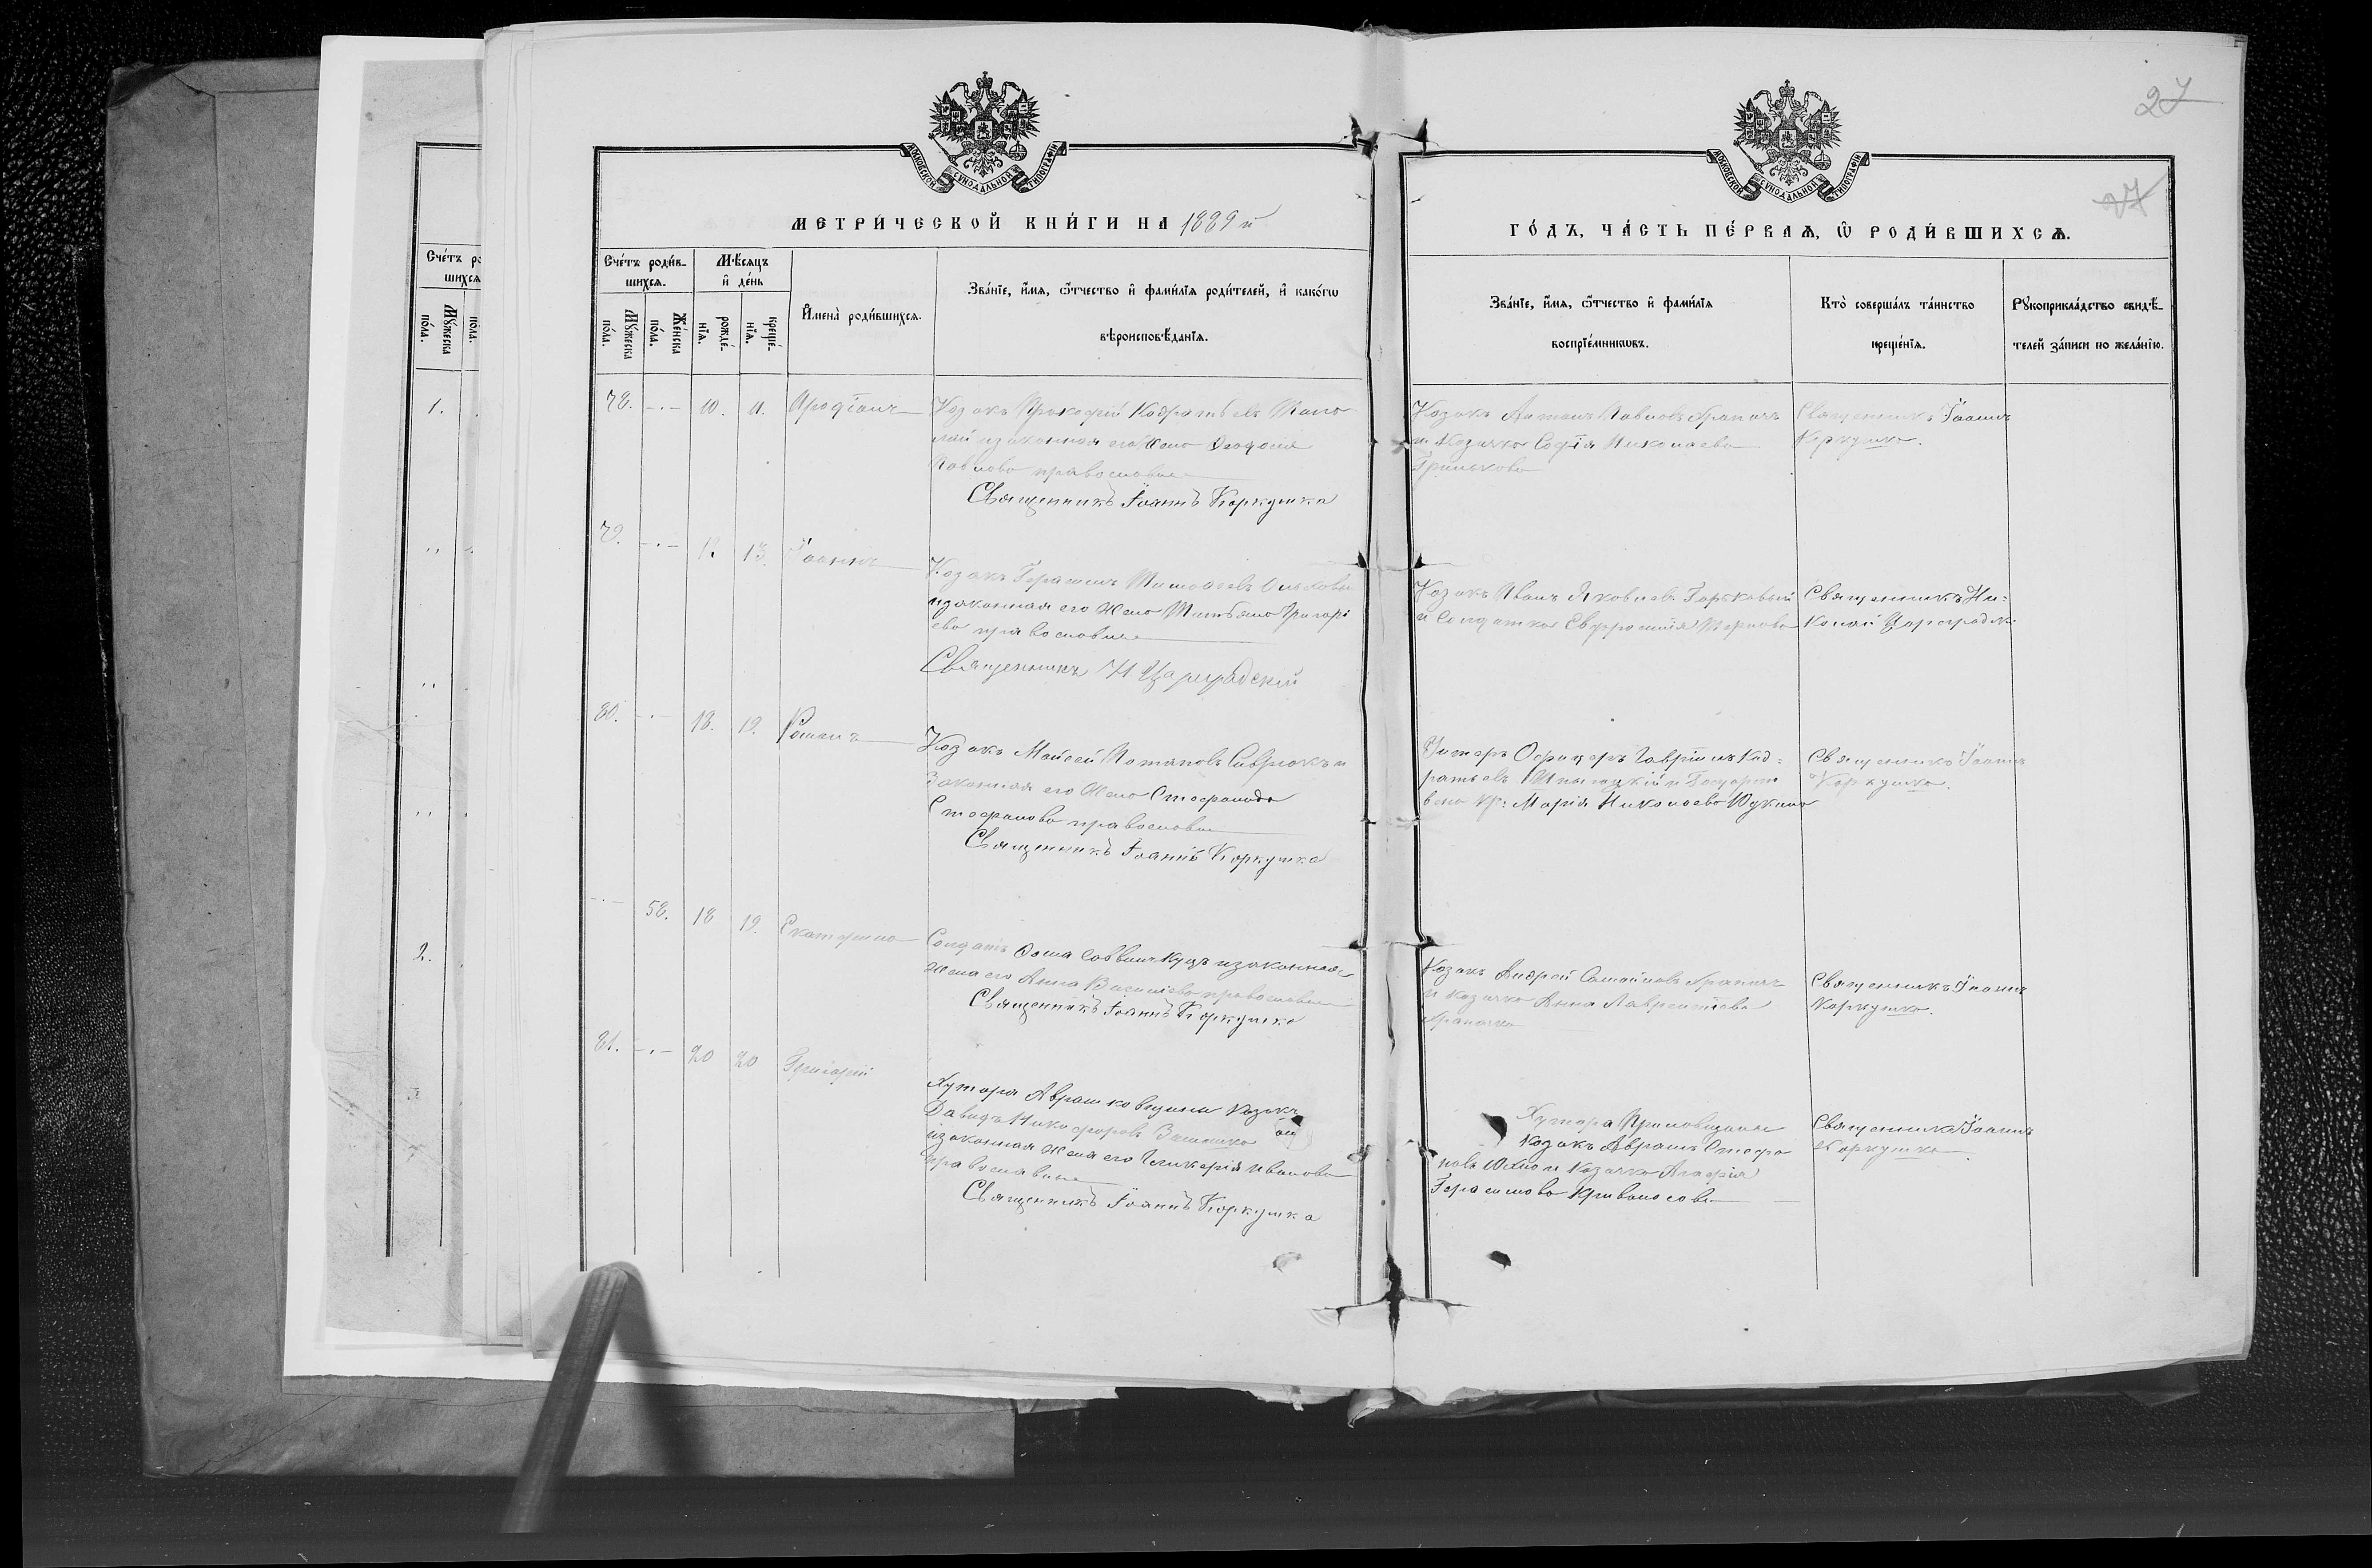 27
МОСКОВСКОЙ СѴНОДАЛЬНОЙ ТИПОГРАФІИ
МОСКОВСКОЙ СѴНОДАЛЬНОЙ ТИПОГРАФІИ
27
МЕТРИ́ЧЕСКОЙ КНИ́ГИ НА 1889 й
ГО́ДЪ, ЧА́СТЬ ПЕ́РВАѦ, Ѡ҆ РОДИ́ВШИХСѦ.
Сче́тъ ро
шихсѧ
Мꙋ́жеска
по́ла.
по́ла.
1.
2.
Сче́тъ роди́в-
шихсѧ.
Мꙋ́жеска
по́ла.
Же́нска
по́ла.
Мѣ́сѧцъ
и҆ де́нь
рожде́-
нїѧ.
креще́-
нїѧ.
И҆мена̀ роди́вшихсѧ.
Зва́нїе, и҆́мѧ, ѻ҆́тчество и҆ фами́лїѧ роди́телей, и҆ како́гѡ
вѣроисповѣ́данїѧ.
Зва́нїе, и҆́мѧ, ѻ҆́тчество и҆ фами́лїѧ
воспрїе́мникѡвъ.
Кто̀ соверша́лъ та́инство
креще́нїѧ.
Рꙋкоприкла́дство свидѣ́-
телей за́писи по жела́нїю.
78. -.- 10. 11.
Козакъ Прокофій Кодратьевъ
законная его жена Феодосія
Павлова православные
Священникъ Іоаннъ Коркушка
Козакъ Павловъ Храпачъ
и Козачка Софія Николаева
Гринькова
Священникъ Іоаннъ
Коркушка.
79. -.- 12. 13. Іоаннъ
Козакъ Герасимъ Тимофеевъ
и законная его жена Татьяна Григорі
ева православные
Священникъ Н Цареградскій
Козакъ Иванъ Яковлевъ Горьковый
и Солдатка Евфросинія
Священникъ Ни=
колай Цареградск.
80. -.- 18. 19. Романъ
Козакъ Моисей Потаповъ Саврюкъ и
законная его жена Стефанида
Стефанова православные
Священникъ Іоаннъ Коркушка
Унтеръ Офицеръ Гавріилъ Код=
ратьевъ и Государст
вена кр. Марія Николаева
Священникъ Іоаннъ
Коркушка.
-.- 58. 18 19. Екатерина
Солдатъ Фома Саввинъ Куцъ и законная
жена его Анна Василіева православные
Священникъ Іоаннъ Коркушка
Козакъ Андрей Самойловъ Храпачъ
и козачка Анна Лаврентіева
Храпачка
Священникъ Іоаннъ
Коркушка.
81. -.- 20 20 Григорій
Хутора Аврашковщина Козакъ
Давидъ Никифоровъ
и законная жена его Гликерія Иванова
православные
Священникъ Іоаннъ Коркушка
Хутора
Козакъ Аврамъ Стефа
новъ Юхно и Козачка Агафія
Герасимова Кривоносова
Священникъ Іоаннъ
Коркушка.